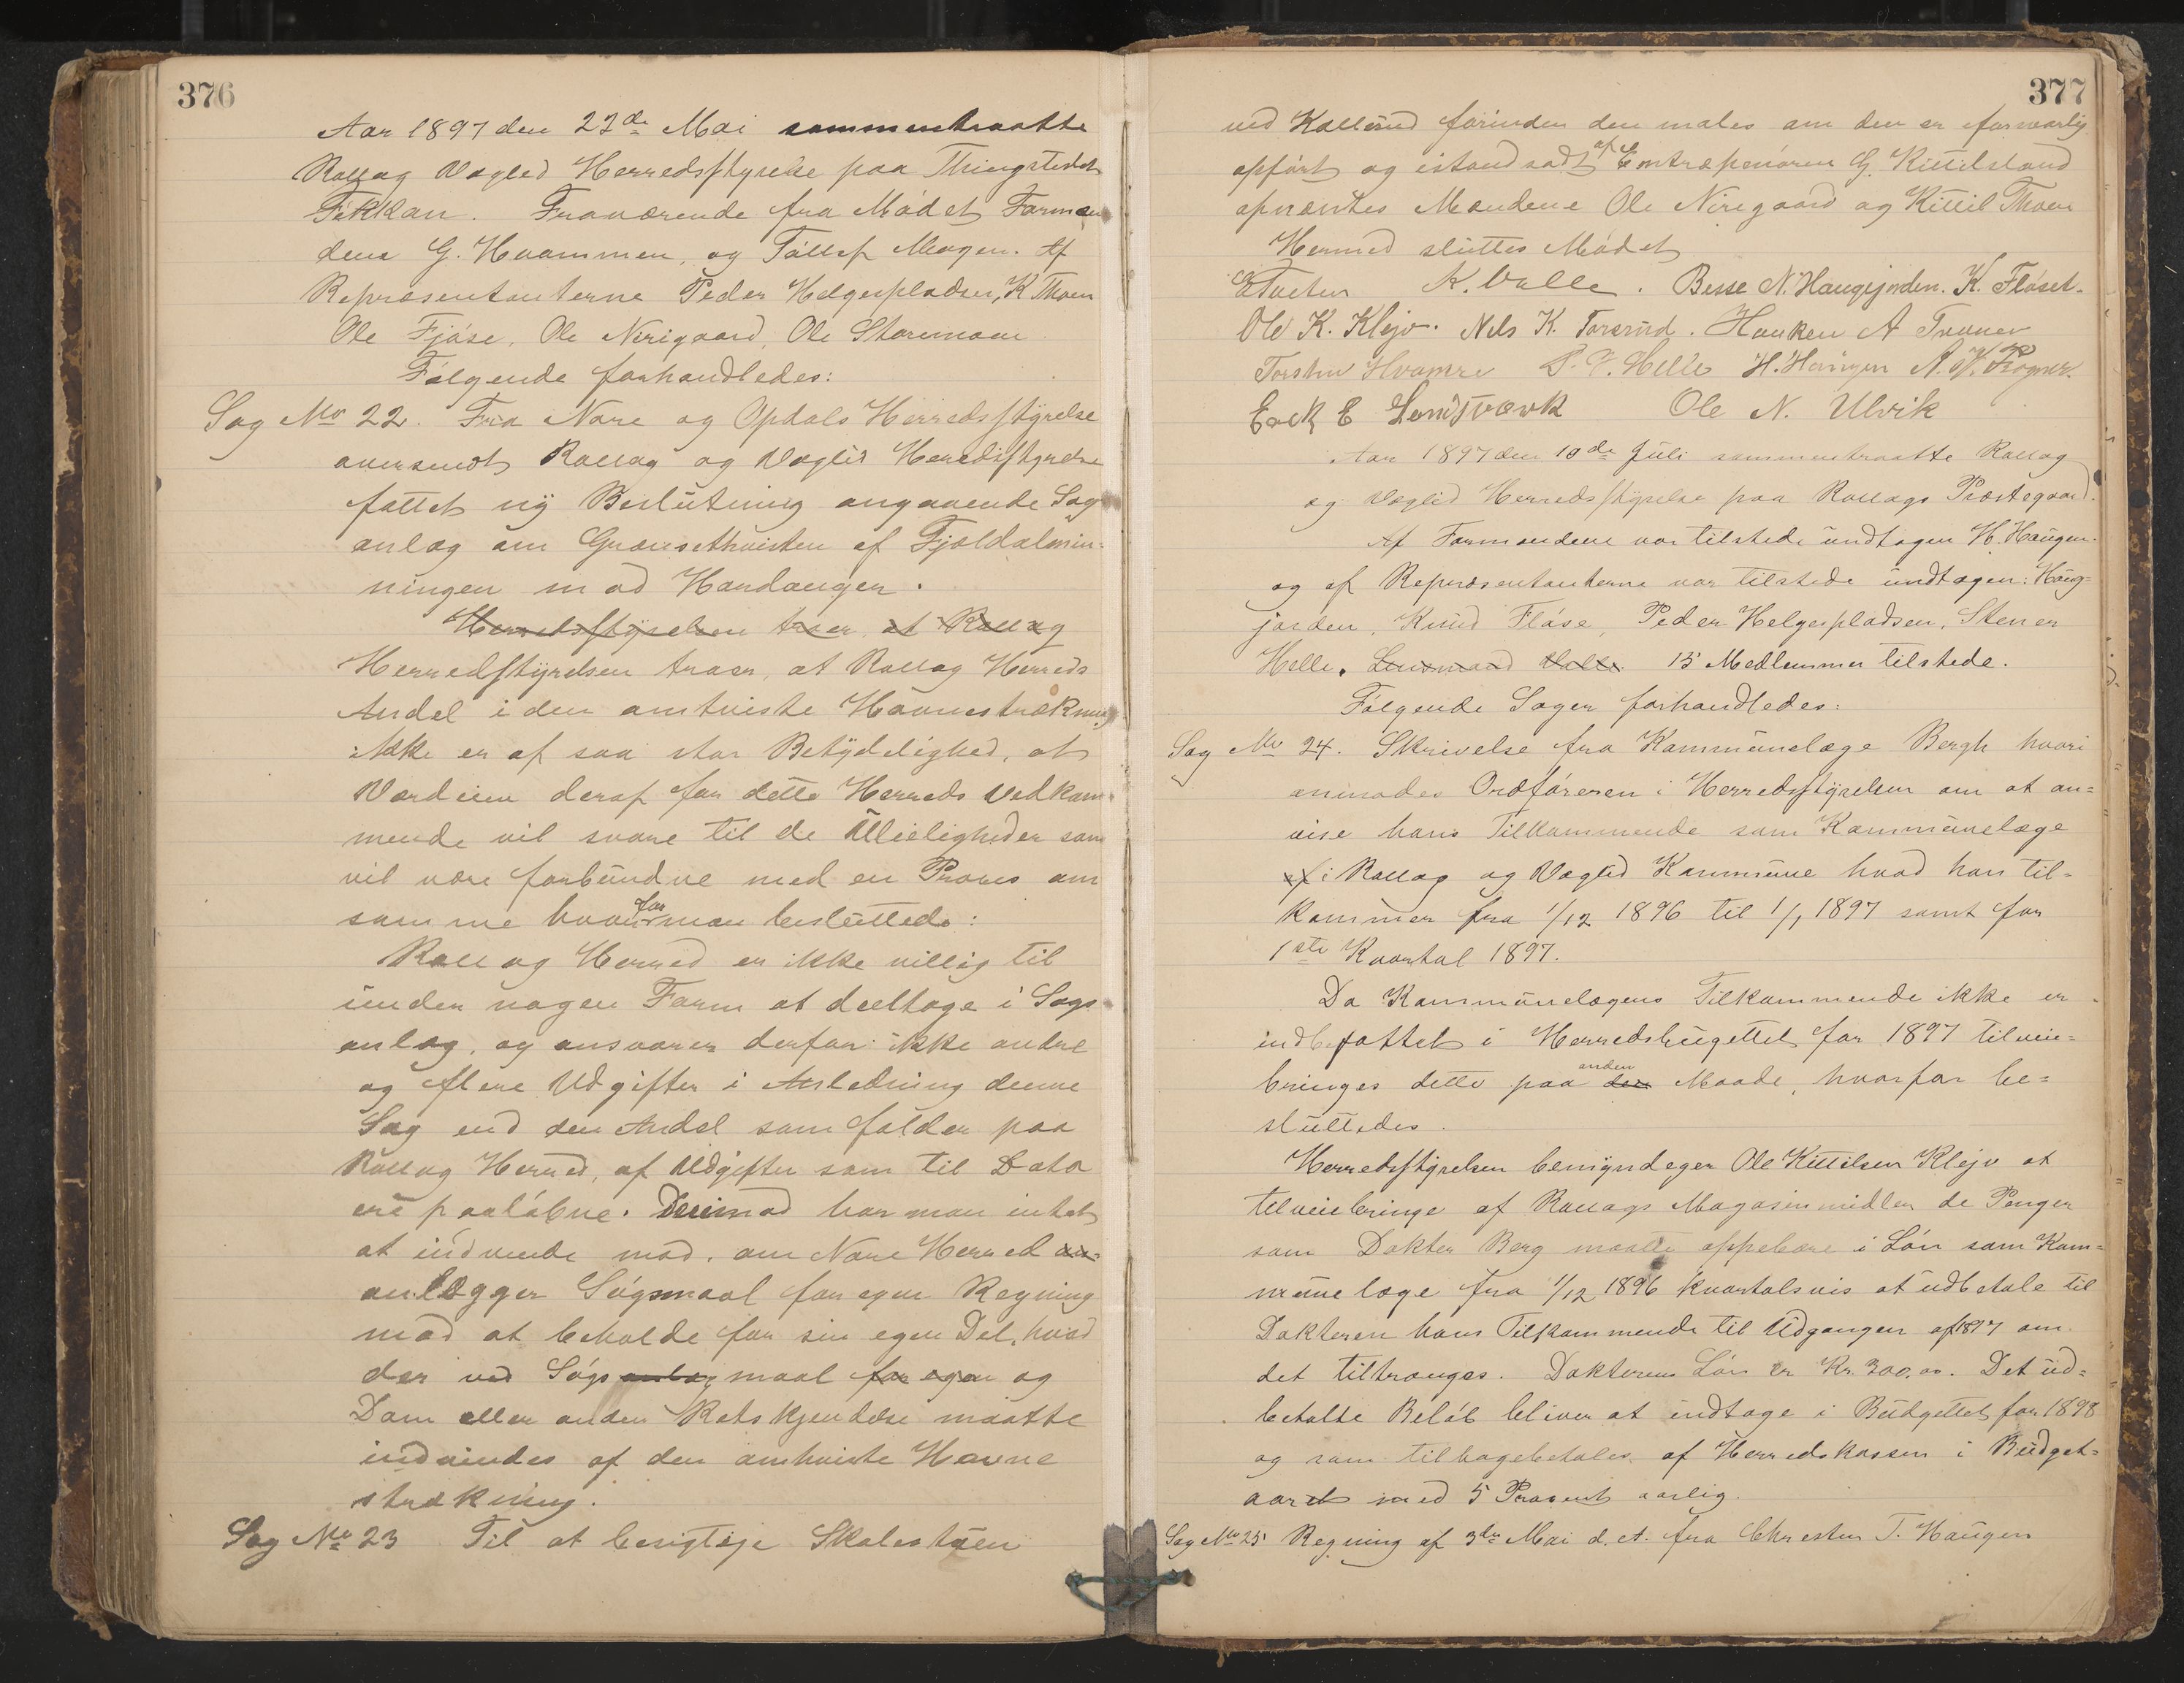 376
Aar 1897 den 22de Mai sammentraatte
Rollag Vegled Herredsstyrelse paa Thingstedet
Fekkan. Fraværende fra Mødet Formæn
dene G. Hvammen, og Tøllef Mogen. Af
Repræsentanterne Peder Helgerpladsen, K Thoen
Ole Fjøse, Ole Nerigaard, Ole Staremoen
Følgende forhandledes:
Sag No 22. Fra Nore og Opdals Herredsstyrelse
oversendt Rollag og Veglis Herredsstyrelse
fattet ny Beslutning angaaende Sag
anlæg om Grænsethvisten af Fjeldalmin-
ningen mod Hardanger.
Herredsstyrelsen troer at Rollag
Herredsstyrelsen troer, at Rollag Herreds
Andel i den omtviste Havnestrækning
ikke er af saa stor Betydelighed, at
Værdien deraf for dette Herreds Vedkom-
mende vil svare til de Uleiligheder som
vil være forbundne med en Proces om
samme hvorfor man besluttede:
Rollag Herred er ikke villig til
under nogen Form at deeltage i Sags
anlæg, og ansvarer derfor ikke andre
og flere Udgifter i Anledning denne
Sag end den Andel som falder paa
Rollag Herred, af Udgifter som til Dato
ere paaløbne. Derimod har man intet
at indvende mod, om Nore Herred an-
anlægger Søgsmaal for egen Regning
mod at beholde for sin egen Del, hvad
der ved Søgsanlæg maal for egen og
Dom eller anden Retskjendelse maatte
indvindes af den omtviste Havne
strækning.
Sag No 23 Til at besigtige Skolestuen
377
ved Kallerud forinden den males om den er forsvarlig
opført og istandsadt af Entrepenøren G. Kittilsland
opnævntes Mændene Ole Niregaard og Kittil Thoen
Hermed sluttes Mødet
ETveten K. Valle. Besse N. Haugjorden. K. Fløset.
Ole K. Klejv. Nels K. Torsrud. Haaken A Traaen
Torsten Hvamre P. T. Helle H. Haugen A. K. Kogner.
Erek E Landsverk Ole N. Ulvik
Aar 1897 den 10de Juli sammentraatte Rollag
og Veglid Herredsstyrelse paa Rollags Præstegaard.
Af Formændene var tilstede undtagen H. Haugen
og af Repræsentanterne var tilstede undtagen: Haug-
jorden, Knud Fløse, Peder Helgerpladsen, Stener
Helle. Lensmand Valle 15 Medlemmer tilstede.
Følgende Sager forhandledes:
Sag No 24. Skrivelse fra Kommunelæge Bergh hvori
anmodes Ordføreren i Herredsstyrelsen om at an-
vise hans Tilkommende som Kommunelæge
af i Rollag og Veglid Kommune hvad han til-
kommer fra 1/12 1896 til 1/1 1897 samt for
1ste Kvartal 1897.
Da Kommunelægens Tilkommende ikke er
indbefattet i Herredsbugettet for 1897 tilveie-
bringes dette paa den anden Maade, hvorfor be-
sluttedes.
Herredsstyrelsen bemyndeger Ole Kittilsen Klejv at
tilveiebringe af Rollags Magasinmidler de Penger
som Dokter Berg maatte oppebære i Løn som Kom-
munelæge fra 1/12 1896 kvartalsvis at udbetale til
Dokteren hans Tilkommende til Udgangen af 1897 om
det tiltrænges. Dokterens Løn er Kr. 300,00. Det ud-
betalte Beløb bliver at indtage i Budgettet for 1898
og som tilbagebetales af Herredskassen i Budget-
aaret med 5 Procent aarlig.
Sag No 25 Regning af 3de Mai d. A. fra Chresten T. Haugen